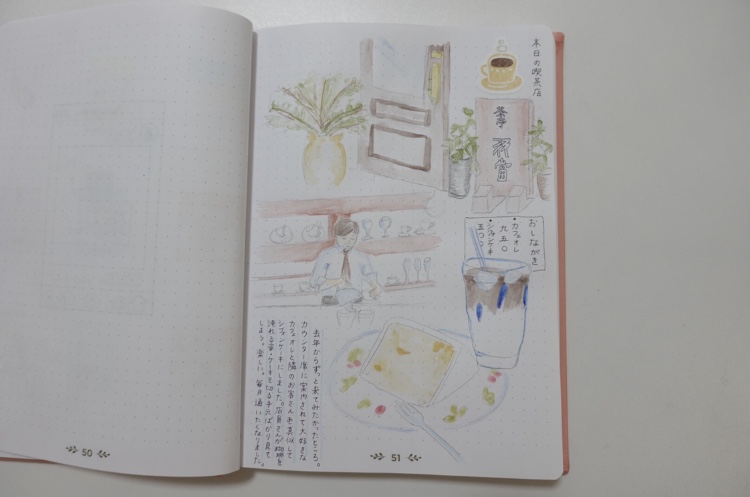 本日の喫茶店
茶亭
羽當
おしながき
・カフェオレ
九五〇
・シフォンケーキ
五〇〇
去年からずっと来てみたかったところ。
カウンター席に案内されて大好きな
カフェオレと隣のお客さんを真似して
シフォンケーキにしました。店員さんが珈琲を
淹れる姿・ケーキを切る手元ばかり見て
しまう。楽しい。毎日通いたくなりました。
50
51